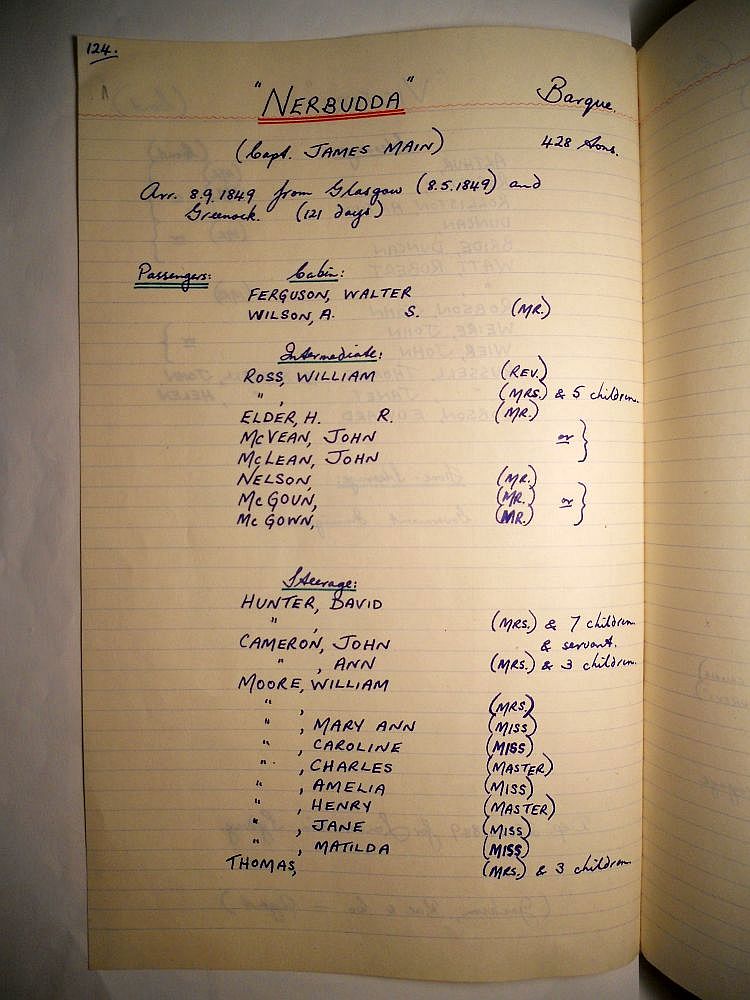 124.
"NERBUDDA" Barque.
(Capt. JAMES MAIN) 428 tons.
Arr. 8.9.1849 from Glasgow (8.5.1849) and
Greenock. (121 days)
Passengers: Cabin:
FERGUSON, WALTER
WILSON, A. S. (MR.)
Intermediate:
ROSS, WILLIAM (REV.)
" , (MRS.) & 5 children.
ELDER, H. R. (MR.)
McVEAN, JOHN or }
McLEAN, JOHN
NELSON, (MR.)
McGOUN, (MR.) or }
McGOWN, (MR.)
Steerage:
HUNTER, DAVID
" , (MRS.) & 7 children
CAMERON, JOHN & servant.
" , ANN (MRS.) & 3 children.
MOORE, WILLIAM
" , (MRS.)
" , MARY ANN (MISS)
" , CAROLINE (MISS)
" , CHARLES (MASTER)
" , AMELIA (MISS)
" , HENRY (MASTER)
" , JANE (MISS)
" , MATILDA (MISS)
THOMAS, (MRS.) & 3 children